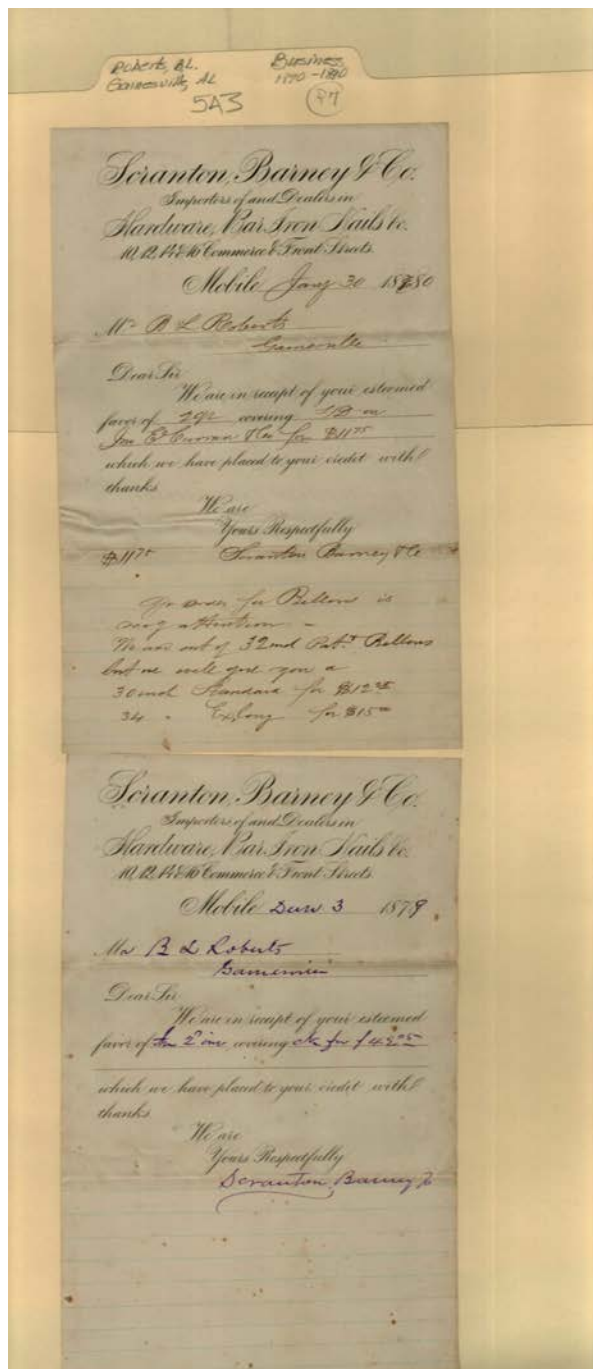 Roberts, BL.
Gainesville, AL
Business
1870-1890
5A3
97
Scranton, Barney & Co.
Importers of and Dealers in
Hardware, Bar Iron Nails &c.
10, 12, 14 & 16 Commerce & Front Streets.
Mobile Jany 30 1880
Mr B L Roberts
Gainesville
Dear Sir
We are in receipt of your esteemed
favor of 29th covering on
Jno for $11 75
which we have placed to your credit with
thanks
We are
Yours Respectfully
$11 75 Scranton Barney & Co
Yr order for Bellows is
attention
We are out of 32 inch Pat. Bellows
but we will give you a
30 inch Standard for $12
34 " Ex long for $15
Scranton, Barney & Co.
Importers of and Dealers in
Hardware, Bar Iron Nails &c.
10, 12, 14 & 16 Commerce & Front Streets.
Mobile 3 1879
Mr B L Roberts
Dear Sir
We are in receipt of your esteemed
favor of covering ck for
which we have placed to your credit with
thanks
We are
Yours Respectfully
Scranton, Barney &